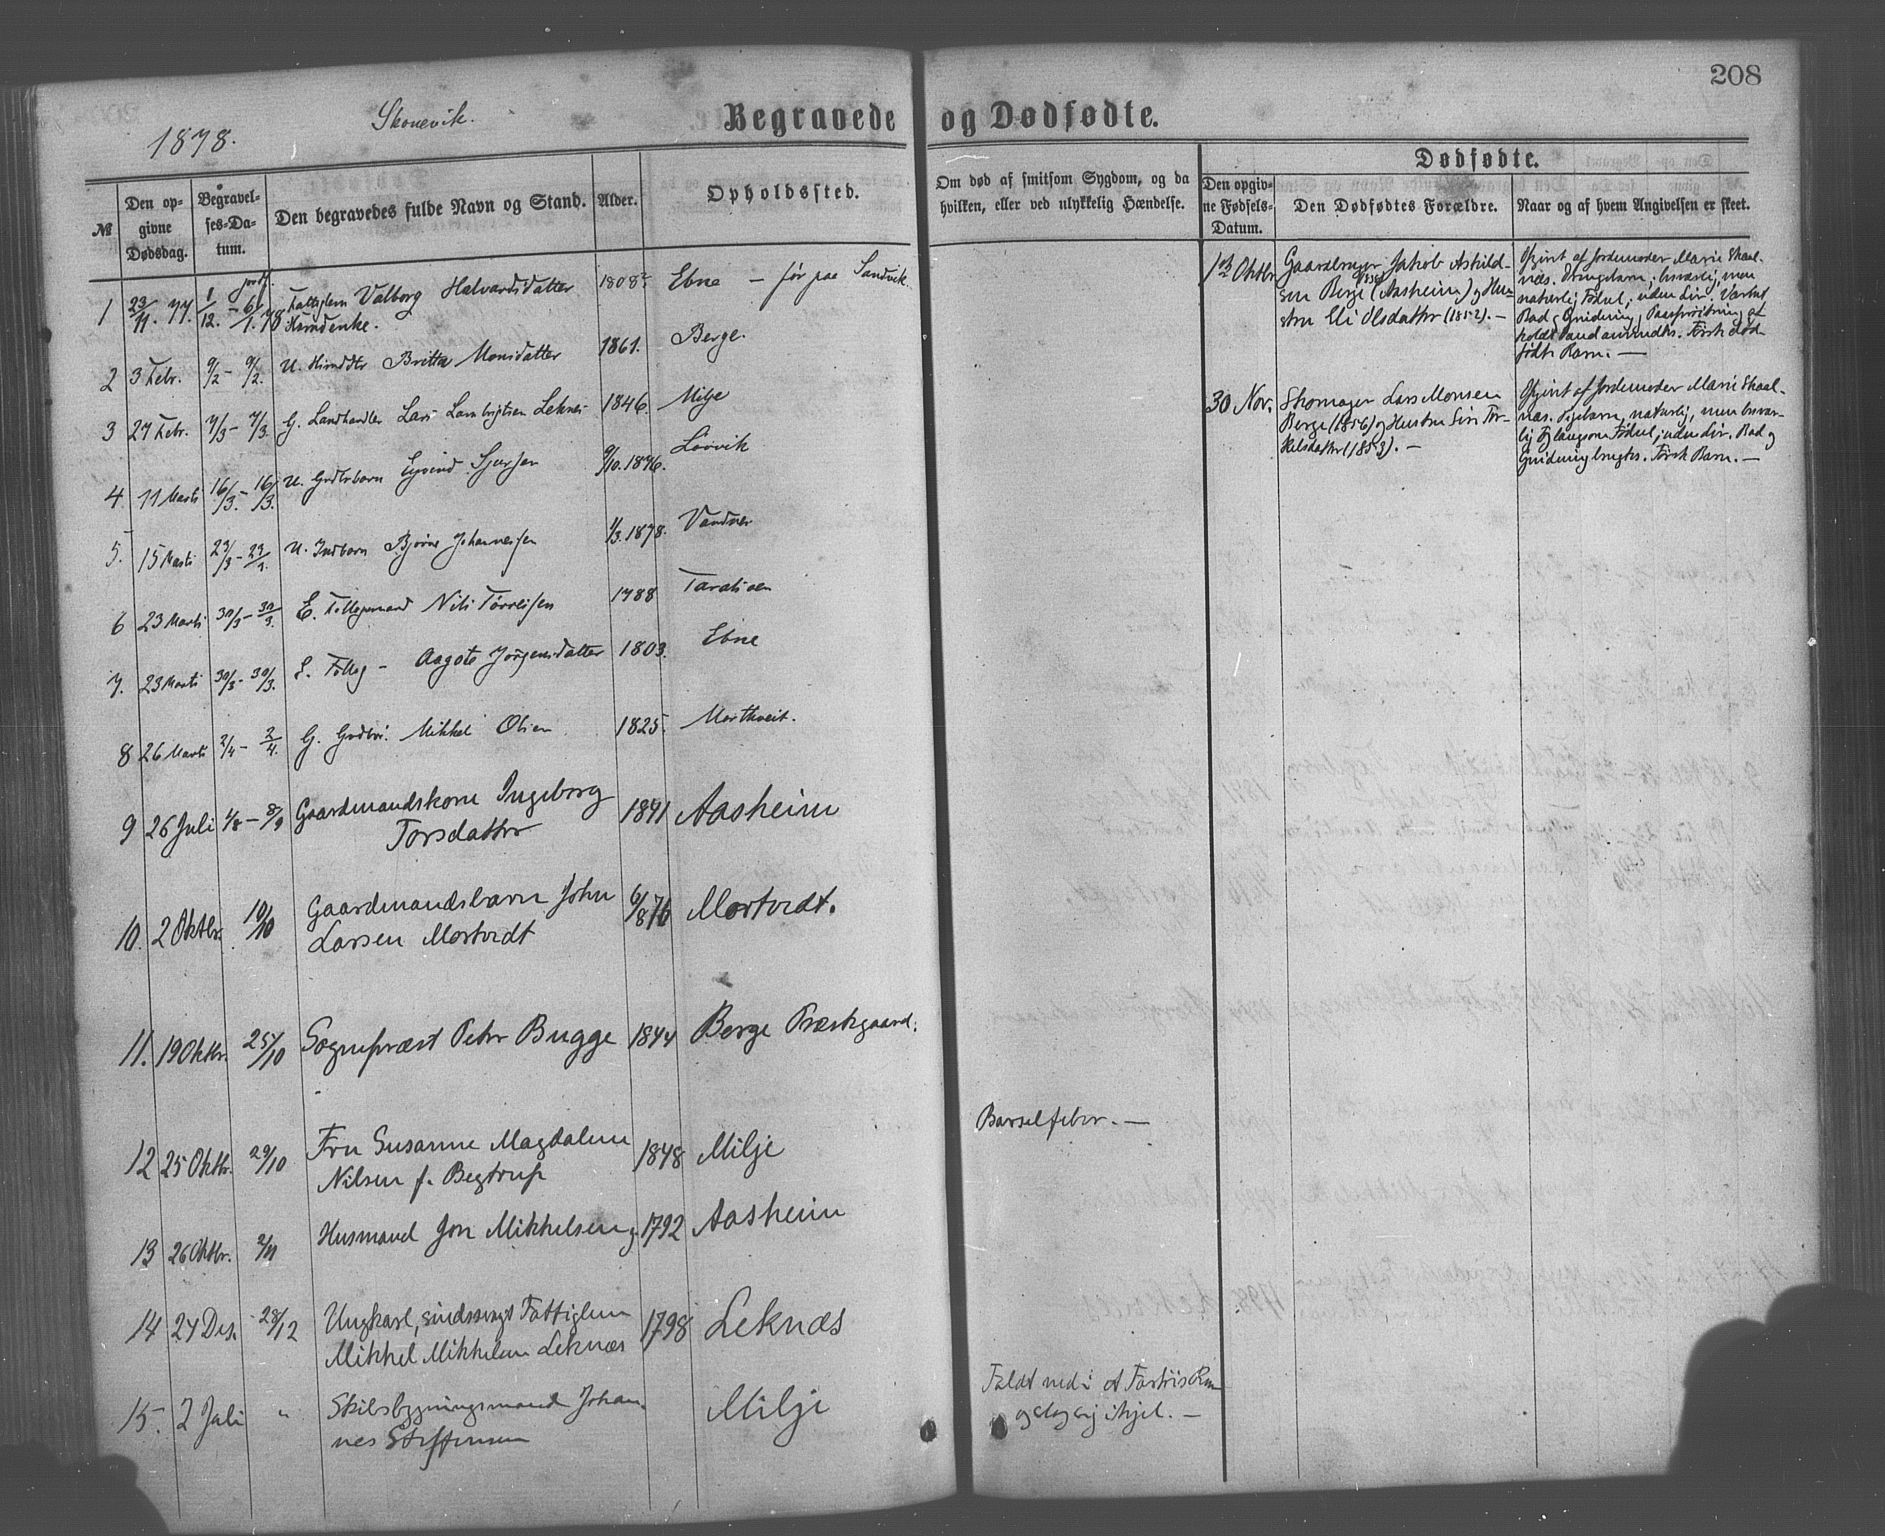 208
1878.
Skonevik.
Begravede og Dødfødte.
№
Den op-
givne
Dødsdag.
Begravel-
ses-Da-
tum.
Den begravedes fulde Navn og Stand.
Alder.
Opholdssted.
Om død af smitsom Sygdom, og da
hvilken, eller ved ulykkelig Hændelse.
Dødfødte.
Den opgiv-
ne Fødsels-
Datum.
Den Dødfødtes Forældre.
Naar og af hvem Angivelsen er skeet.
1 23/11. 77. 1/12. - 6/1. 78 Fattiglem Valborg Halvardsdatter 1808 Ebne - før paa Sandvik.
2 3 Febr. 9/2 - 9/2. U. Britta Monsdatter 1861. Berge.
3 27 Febr. 7/3 - 7/3. G. Landhandler Lars Lambrigtsen Leknes 1846. Milje
4 11 Marts 16/3. - 16/3. U. Eyvind Sjursen 9/10. 1876. Løvvik
5. 15 Marts 23/3 - 23/ U. Indbarn Bjørne Johannessen 1/3. 1878.
6 23 Marts 30/3 - 30/3. E. Nils Tørresen 1788
7. 23 Marts 30/3 - 30/3. E. Aagote Jørgensdatter 1803. Ebne
8 26 Marts 2/4 - 2/4. G. Mikkel Olsen 1825. Mortkveit.
9 26 Juli 4/8 - 8/9 Gaardmandskone Ingeborg 1841 Aasheim
Torsdatter
10. 2 Oktbr. 10/10 Gaardmandsbarn John 6/8 76 Mortvedt.
Larsen Mortvedt
11. 19 Oktbr. 25/10 Sognepræst Peter Bugge 1844 Berge Præstegaard.
12 25 Oktbr. 29/10 Fru Susanne Magdalene 1848 Milje Barselfeber. —
Nilsen f. Begtrup
13 26 Oktbr. 2/11 Husmand Jon Mikkelsen 1792 Aasheim
14 24 Des. 28/12 Ungkarl, sindssvagt Fattiglem 1798 Leknæs
Mikkel Mikkelsen Leknæs
15. 2 Juli " Skibsbygningsmand Johan- Milje Faldt ned i et
nes Steffensen og slog sig ihjel. —
13 Oktbr Gaardbruger Jakob Askild-
sen Berge (Aasheim) og Hu-
stru Eli Olsdatter (1852). —
Opgivt af Jordemoder Marie Skaal-
næs. Drengebarn; besværlig, men
naturlig Fødsel; uden Liv. Varmt
Bad, Gnidning,
koldt Vand anvendtes. Første død-
fødte Barn. —
30 Nov. Skomager Lars Monsen
Berge (1856) og Hustru Siri Tor-
kelsdatter (1853). —
Opgivt af Jordemoder Marie Skaal-
næs. Pigebarn, naturlig, men besvær-
lig og langsom Fødsel; uden Liv. Bad og
Gnidning brugtes. Første Barn. —